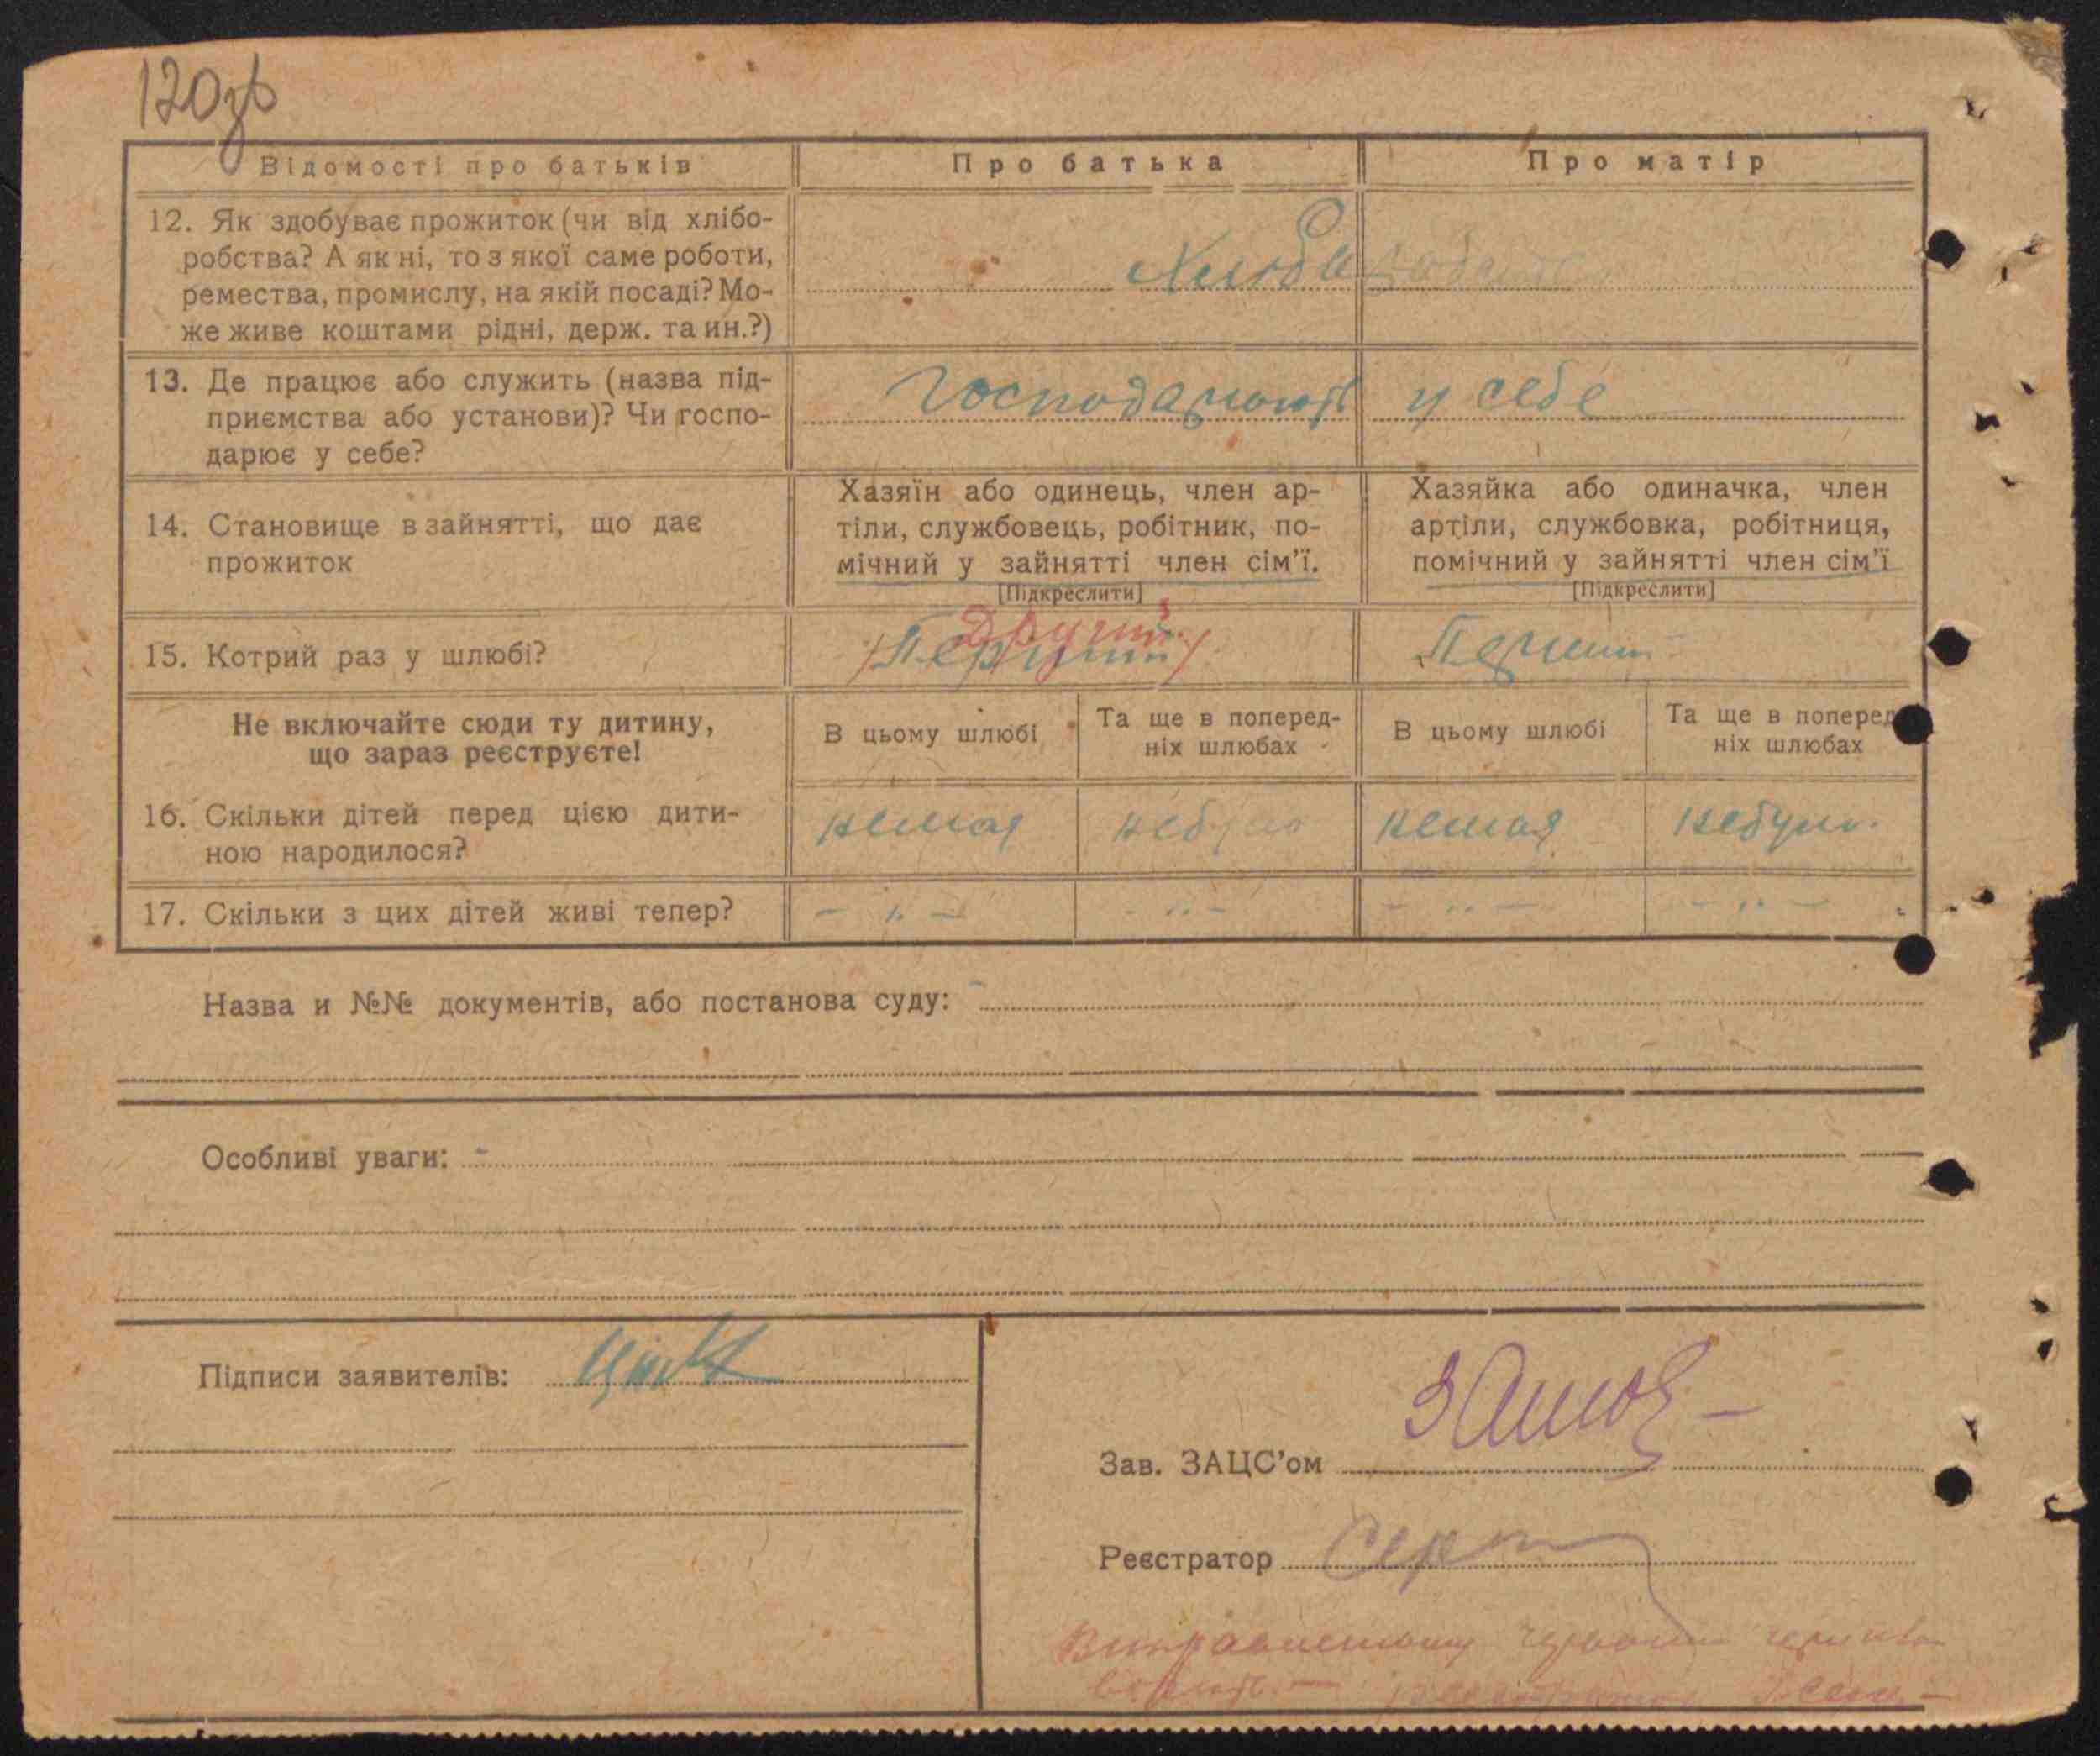 120зв
Відомості про батьків
Про батька
Про матір
12. Як здобуває прожиток (чи від хлібо-
робства? А як ні, то з якої саме роботи,
ремества, промислу, на якій посаді? Мо-
же живе коштами рідні, держ. та ин.?)
13. Де працює або служить (назва під-
приємства або установи)? Чи госпо-
дарює у себе?
Господарюють у себе
14. Становище в зайнятті, що дає
прожиток
Хазяїн або одинець, член ар-
тіли, службовець, робітник, по-
мічний у зайнятті член сім'ї.
[Підкреслити]
Хазяйка або одиначка, член
артіли, службовка, робітниця,
помічний у зайнятті член сім'ї
[Підкреслити]
15. Котрий раз у шлюбі?
Другий
(Перший)
Перший
Не включайте сюди ту дитину,
що зараз реєструєте!
В цьому шлюбі
Та ще в поперед-
ніх шлюбах
В цьому шлюбі
Та ще в поперед
ніх шлюбах
16. Скільки дітей перед цією дити-
ною народилося?
немая
небуло
немая
небуло
17. Скільки з цих дітей живі тепер?
- " -
- " -
- " -
- " -
Назва и №№ документів, або постанова суду:
Особливі уваги: -
Підписи заявителів:
Зав. ЗАЦС'ом
Реєстратор